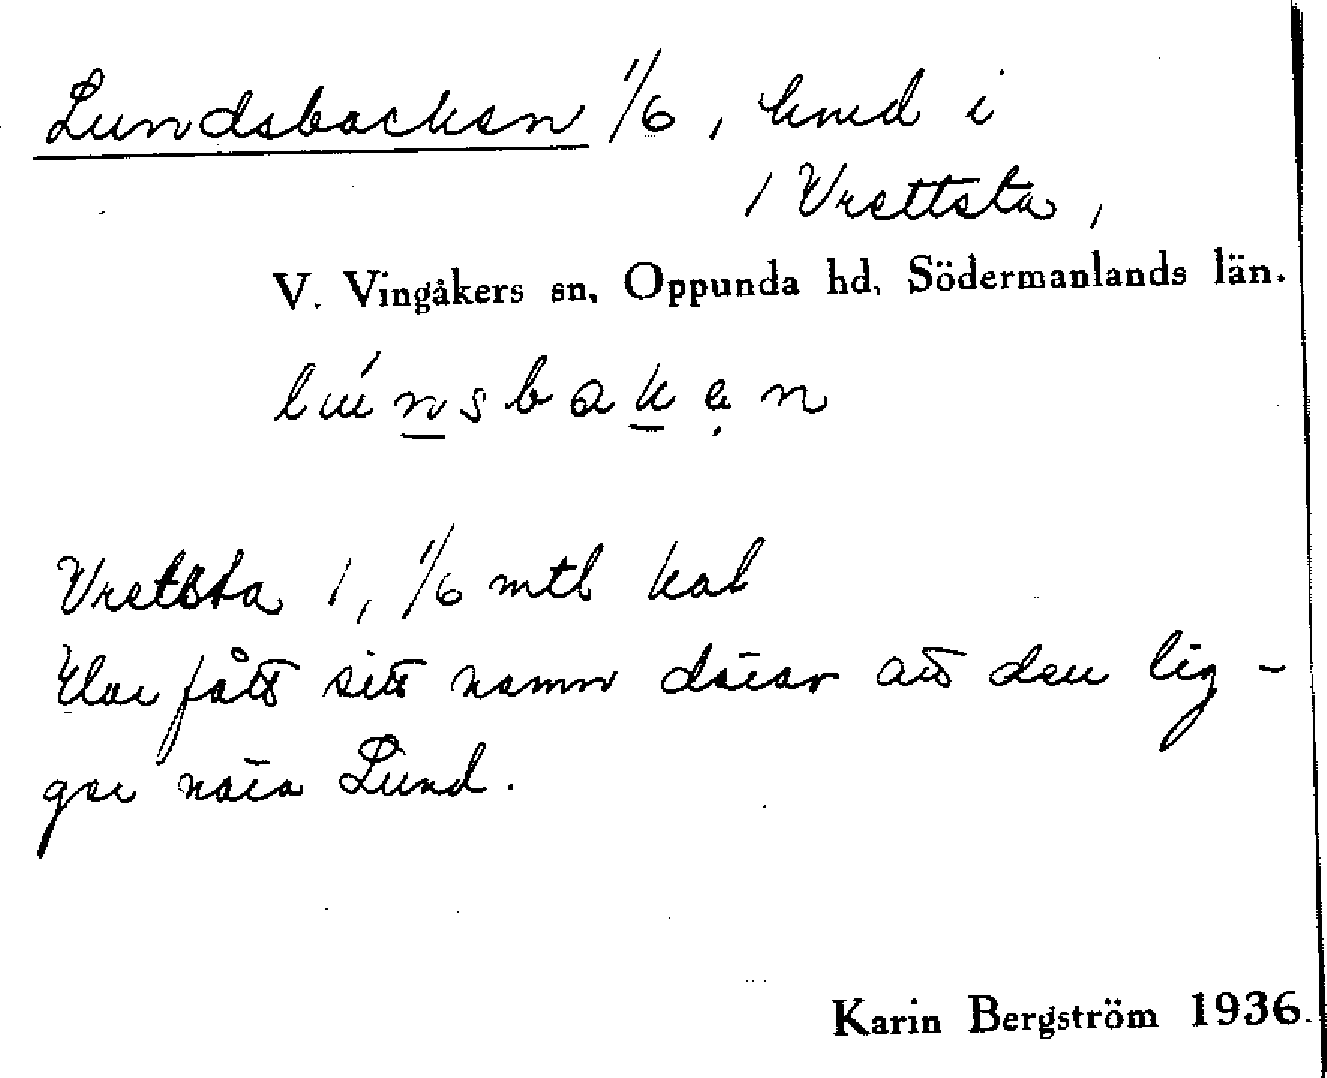 Lundsbacken 1/6, hmd i
1 Vrettsta,
V. Vingåkers sn, Oppunda hd, Södermanlands län.
lúnsbakẹn
Vretsta 1, 1/6 mtl kal
Har fått sitt namn därav att den lig-
ger nära Lund.
Karin Bergström 1936.